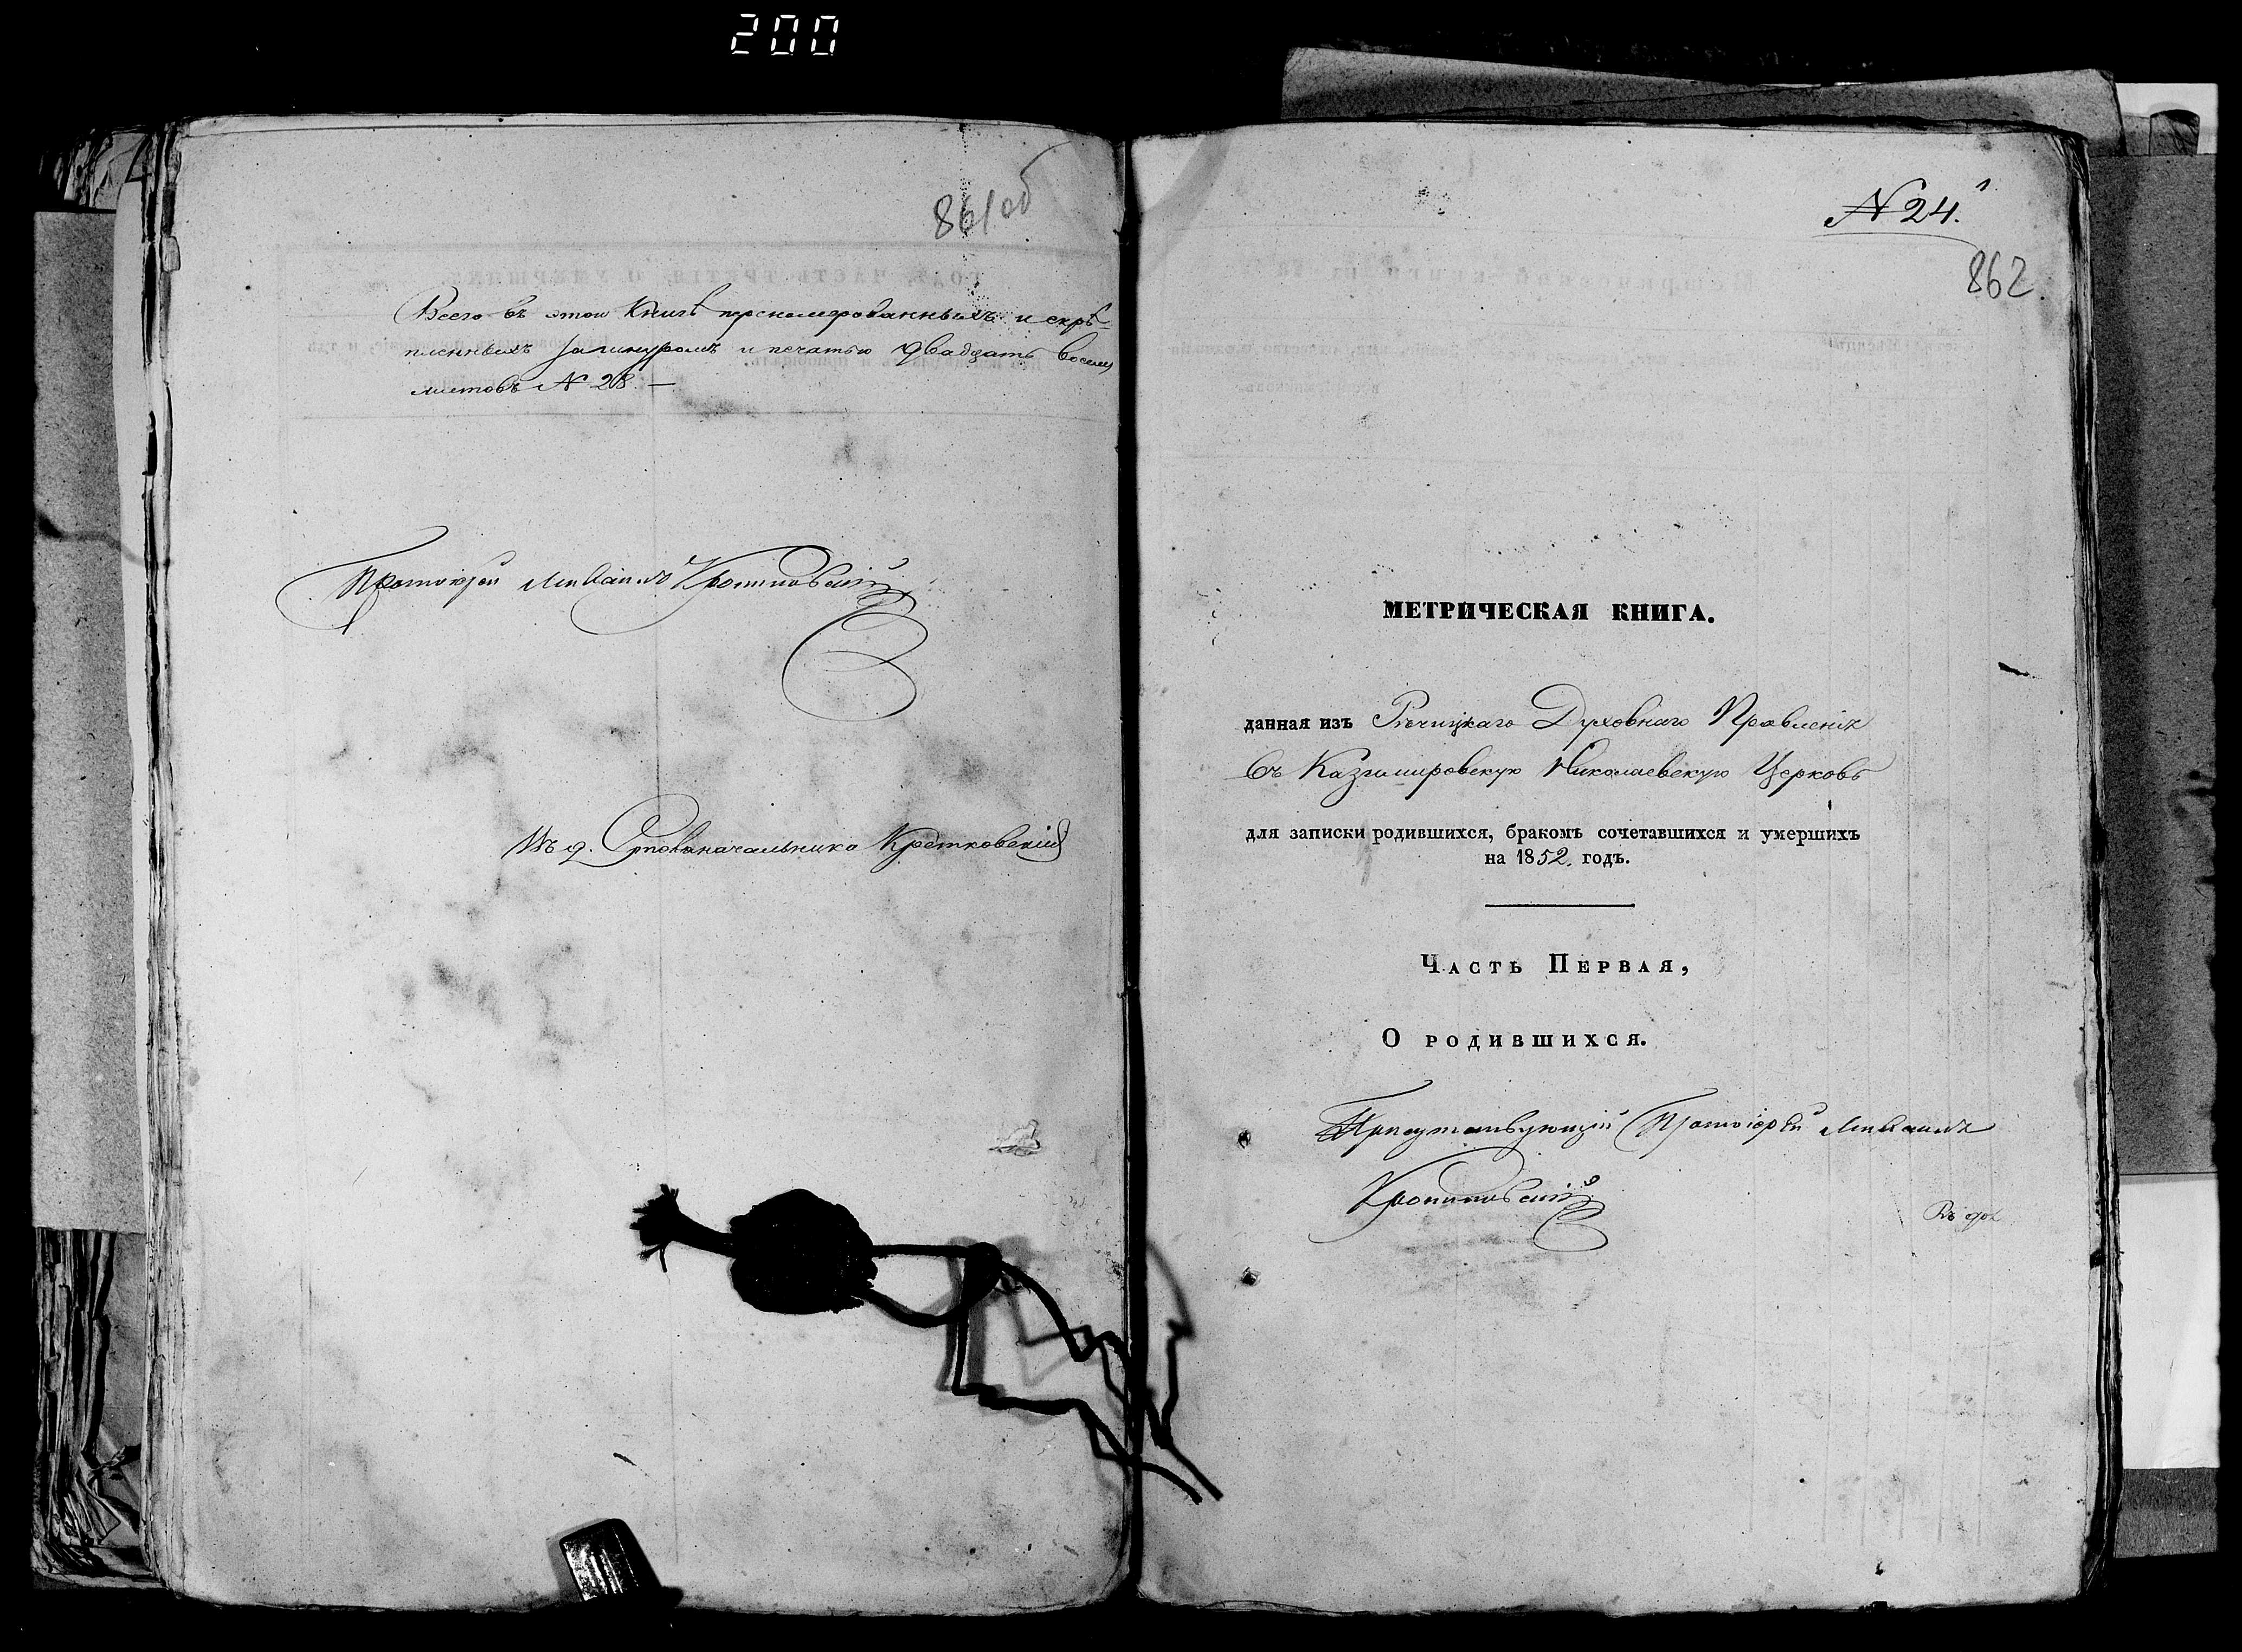 200
861об
Всего въ этой Книгѣ перенумерованныхъ и скрѣ-
пленныхъ за шнуромъ и печатью двадцать восемь
листовъ № 28. —
Протоіерей Михаилъ
Въ д. Столоначальника
№ 24.
1
862
МЕТРИЧЕСКАЯ КНИГА.
данная изъ Рѣчицкаго Духовнаго Правленія
въ Казимировскую Николаевскую Церковь
для записки родившихся, бракомъ сочетавшихся и умершихъ
на 1852. годъ.
Часть Первая,
О родившихся.
Присутствующій Протоіерей Михаилъ